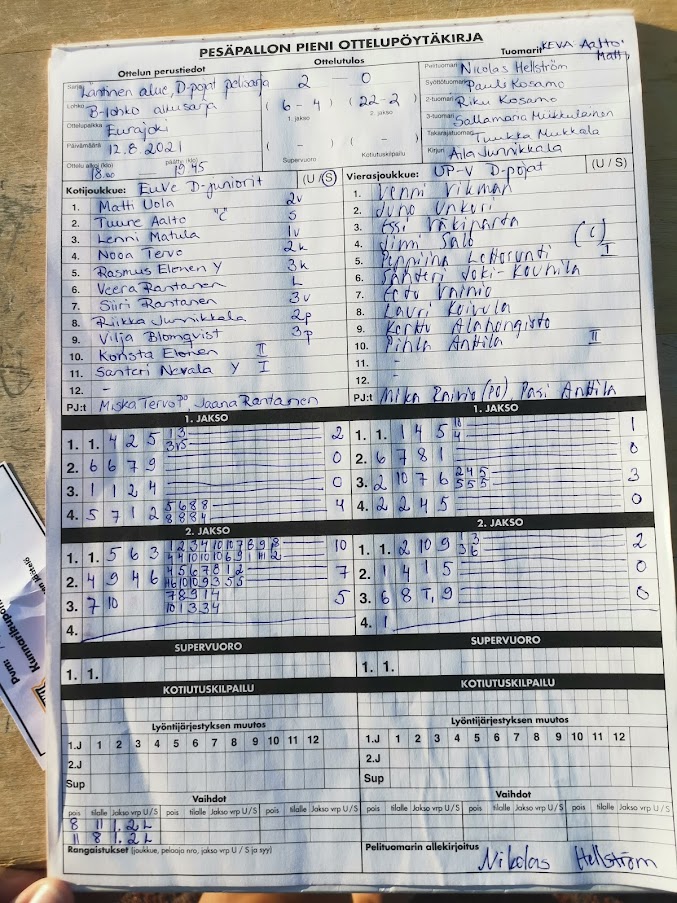 PESÄPALLON PIENI OTTELUPÖYTÄKIRJA
Ottelun perustiedot Ottelutulos Tuomarit KEVA Aalto Matti
Sarja Läntinen alue, D-pojat pelisarja 2 – 0 Pelituomari Nicolas Hellström
Lohko B-lohko alkusarja ( 6 – 4 ) ( 22 – 2 ) Syöttötuomari Pauli Kosamo
1. jakso 2. jakso 2-tuomari Riku Kosamo
Ottelupaikka Eurajoki ( – ) 3-tuomari Sallamaria Mikkulainen
Päivämäärä 12.8.2021 Supervuoro Kotiutuskilpailu Takarajatuomari Tuukka Mukkala
Ottelu alkoi (klo) 18.00 päättyi (klo) 19.45 Kirjuri Aila Junnikkala
Kotijoukkue: EuVe D-juniorit (U / S) Vierasjoukkue: UP-V D-pojat (U / S)
1. Matti Uola 2v 1. Venni Vikman
2. Tuure Aalto "C" 5 2. Juno Unkuri
3. Lenni Matula 1v 3. Essi Väkiparta
4. Nooa Tervo 2k 4. Jimi Salo (C)
5. Rasmus Elonen Y 3k 5. Penniina Lettosunti I
6. Veera Rantanen L 6. Santeri Joki-Kouhila
7. Siiri Rantanen 3v 7. Eetu Vainio
8. Riikka Junnikkala 2p 8. Lauri Koivula
9. Vilja Blomqvist 3p 9. Kerttu Alahongisto
10. Konsta Elonen II 10. Pihla Anttila II
11. Santeri Nevala Y I 11. –
12. – 12. –
PJ:t Miska Tervo PO, Jaana Rantanen PJ:t Mika Rainio (PO), Pasi Anttila
1. JAKSO 1. JAKSO
1. 1. 4 2 5 1 3 2 1. 1. 1 4 5 10 1
3 5 4
2. 6 6 7 9 0 2. 6 7 8 1 0
3. 1 1 2 4 0 3. 2 10 7 6 2 4 5 3
5 5 5
4. 5 7 1 2 5 6 8 8 4 4. 2 2 4 5 0
8 8 8 4
2. JAKSO 2. JAKSO
1. 1. 5 6 3 1 2 3 4 10 10 7 8 9 8 10 1. 1. 2 10 9 1 3 2
4 4 10 10 10 6 9 1 11 2 3 6
2. 4 9 4 6 4 5 6 7 8 1 2 7 2. 1 4 1 5 0
4 6 10 10 9 3 5 5
3. 7 10 7 8 9 1 4 5 3. 6 8 T, 9 0
10 1 3 3 4
4. 4. 1
SUPERVUORO SUPERVUORO
1. 1. 1. 1.
KOTIUTUSKILPAILU KOTIUTUSKILPAILU
Lyöntijärjestyksen muutos Lyöntijärjestyksen muutos
1.J 1 2 3 4 5 6 7 8 9 10 11 12 1.J 1 2 3 4 5 6 7 8 9 10 11 12
2.J 2.J
Sup Sup
Vaihdot Vaihdot
pois tilalle Jakso vrp U / S pois tilalle Jakso vrp U / S pois tilalle Jakso vrp U / S pois tilalle Jakso vrp U / S
8 11 1. 2 L
11 8 1. 2 L
Rangaistukset (joukkue, pelaaja nro, jakso vrp U / S ja syy) Pelituomarin allekirjoitus Nikolas Hellström
Pvm:
Kunnarikuponki